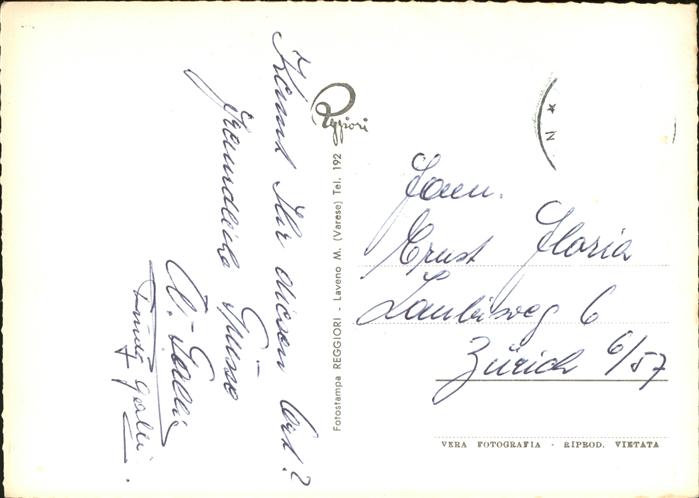 Kennt Ihr diesen Ort?
Freundliche Grüsse
Galli
Reggiori
Fotostampa REGGIORI - Laveno M. (Varese) Tel. 192
N *
Fam.
Ernst Gloria
6
Zürich 6/57
VERA FOTOGRAFIA - RIPROD. VIETATA